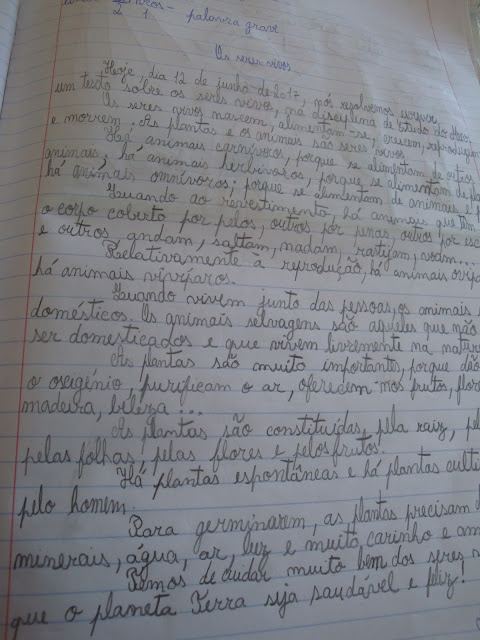 palavra grave
2 1
Os seres vivos
Hoje, dia 12 de junho de 2017, nós resolvemos escrever
um texto sobre os seres vivos, na disciplina de Estudo do Meio.
Os seres vivos nascem, alimentam-se, crescem, reproduzem
e morrem. As plantas e os animais são seres vivos.
Há animais carnívoros, porque se alimentam de outros
animais, há animais herbívoros, porque se alimentam de
há animais omnívoros; porque se alimentam de animais e
Quando ao revestimento, há animais que têm
o corpo coberto por pelos, outros por penas, outros por
e outros, andam, saltam, nadam, rastejam, voam...
Relativamente à reprodução, há animais
há animais vivíparos.
Quando vivem junto das pessoas, os animais
domésticos. Os animais selvagens são aqueles que não
ser domesticados e que vivem livremente na
As plantas são muito importantes, porque dão
o oxigénio, purificam o ar, oferecem-nos frutos,
madeira, beleza...
As plantas são constituídas, pela raiz,
pelas folhas, pelas flores e pelos frutos.
Há plantas espontâneas e há plantas
pelo homem.
Para germinarem, as plantas precisam
minerais, água, ar, luz e muito carinho e
Temos de cuidar muito bem dos seres
que o planeta Terra seja saudável e feliz!